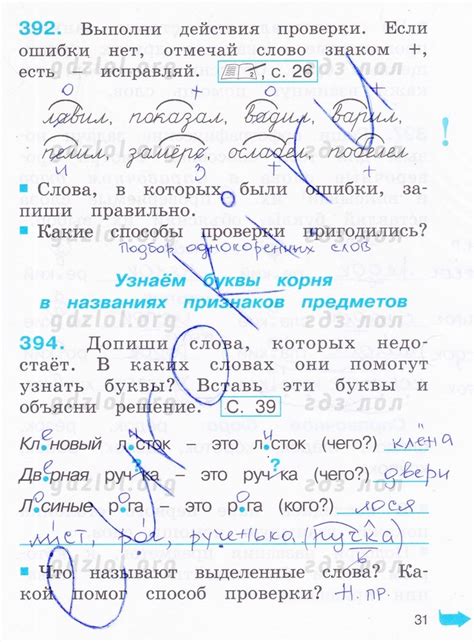 392. Выполни действия проверки. Если
ошибки нет, отмечай слово знаком +,
есть – исправляй. , с. 26
о + о +
лавил, показал, вадил, варил,
пелил, замёрз, осладел, поделел
и з
Слова, в которых были ошибки, за-
пиши правильно.
Какие способы проверки пригодились?
Подбор однокоренных слов
Узнаём буквы корня
в названиях признаков предметов
394. Допиши слова, которых недо-
стаёт. В каких словах они помогут
узнать буквы? Вставь эти буквы и
объясни решение. С. 39
Кленовый листок – это листок (чего?) клёна
Дверная ручка – это ручка (чего?) двери
Лосиные рога – это рога (кого?) лося
лист, рог, рученька (ручка)
Что называют выделенные слова? Ка-
кой помог способ проверки? Н. пр.
31
gdzlol.org
гдз лол